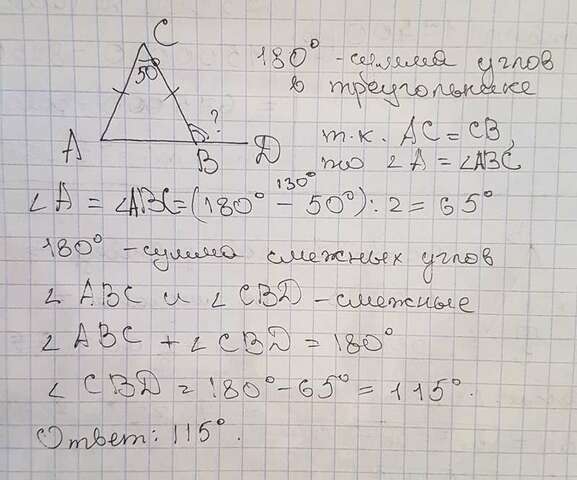 C
50°
?
A
B
D
180° - сумма углов
в треугольнике
т.к. AC = CB,
то ∠A = ∠ABC
130°
∠A = ∠ABC = (180° - 50°) : 2 = 65°
180° - сумма смежных углов
∠ABC и ∠CBD - смежные
∠ABC + ∠CBD = 180°
∠CBD = 180° - 65° = 115°.
Ответ: 115°.